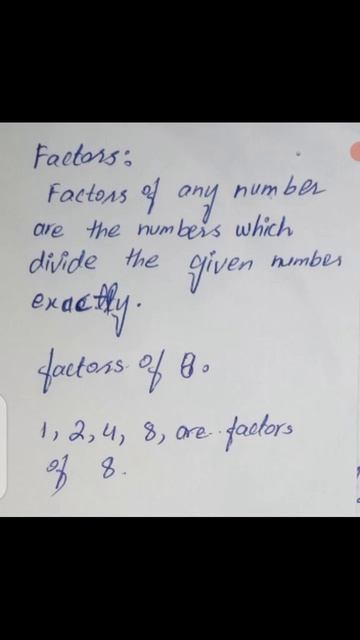 Factors:
Factors of any number
are the numbers which
divide the given number
exactly.
factors of 8.
1, 2, 4, 8, are factors
of 8.